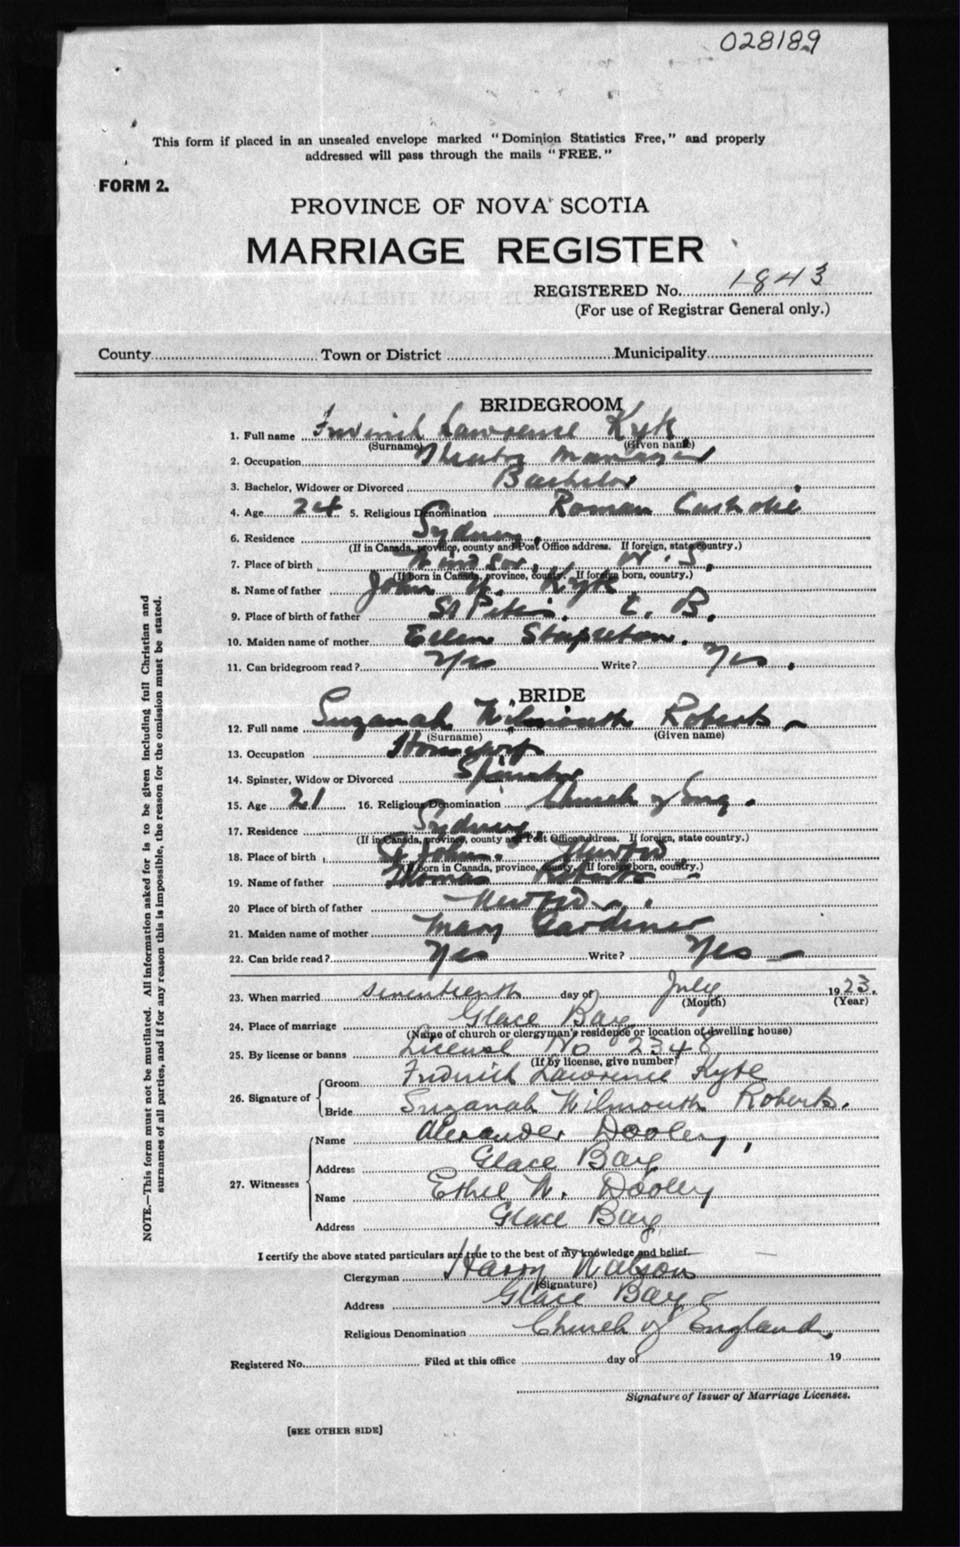 028189
This form if placed in an unsealed envelope marked "Dominion Statistics Free," and properly
addressed will pass through the mails "FREE."
FORM 2.
PROVINCE OF NOVA SCOTIA
MARRIAGE REGISTER
REGISTERED No. 1843
(For use of Registrar General only.)
County Town or District Municipality
BRIDEGROOM
1. Full name Lawrence Kyte
(Surname) (Given name)
2. Occupation Manager
3. Bachelor, Widower or Divorced Bachelor
4. Age 24 5. Religious Denomination Roman Catholic
6. Residence Sydney.
(If in Canada, province, county and Post Office address. If foreign, state country.)
7. Place of birth Windsor, N. S.
(If born in Canada, province, county. If foreign born, country.)
8. Name of father John Kyte
9. Place of birth of father St C. B.
10. Maiden name of mother Ellen Stapleton.
11. Can bridegroom read? Yes Write? Yes.
BRIDE
12. Full name Suzanah Wilmouth Roberts
(Surname) (Given name)
13. Occupation
14. Spinster, Widow or Divorced Spinster
15. Age 21 16. Religious Denomination Church of Eng.
17. Residence Sydney
(If in Canada, province, county and Post Office address. If foreign, state country.)
18. Place of birth St John. Newfnd
(If born in Canada, province, county. If foreign born, country.)
19. Name of father Thomas Roberts
20 Place of birth of father Newfnd.
21. Maiden name of mother Mary Gardiner
22. Can bride read? Yes Write? Yes
23. When married seventeenth day of July 1923.
(Month) (Year)
24. Place of marriage Glace Bay
(Name of church or clergyman's residence or location of dwelling house)
25. By license or banns License No 2348
(If by license, give number)
26. Signature of Groom Lawrence Kyte
Bride Suzanah Wilmouth Roberts.
27. Witnesses Name Alexander Dooley,
Address Glace Bay
Name Ethel W. Dooley
Address Glace Bay
I certify the above stated particulars are true to the best of my knowledge and belief.
Clergyman Harry Watson
(Signature)
Address Glace Bay
Religious Denomination Church of England.
Registered No. Filed at this office day of 19
Signature of Issuer of Marriage Licenses.
[SEE OTHER SIDE]
NOTE.—This form must not be mutilated. All information asked for is to be given including full Christian and
surnames of all parties, and if for any reason this is impossible, the reason for the omission must be stated.